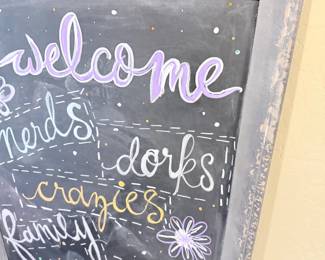 welcome
nerds
dorks
crazies
family